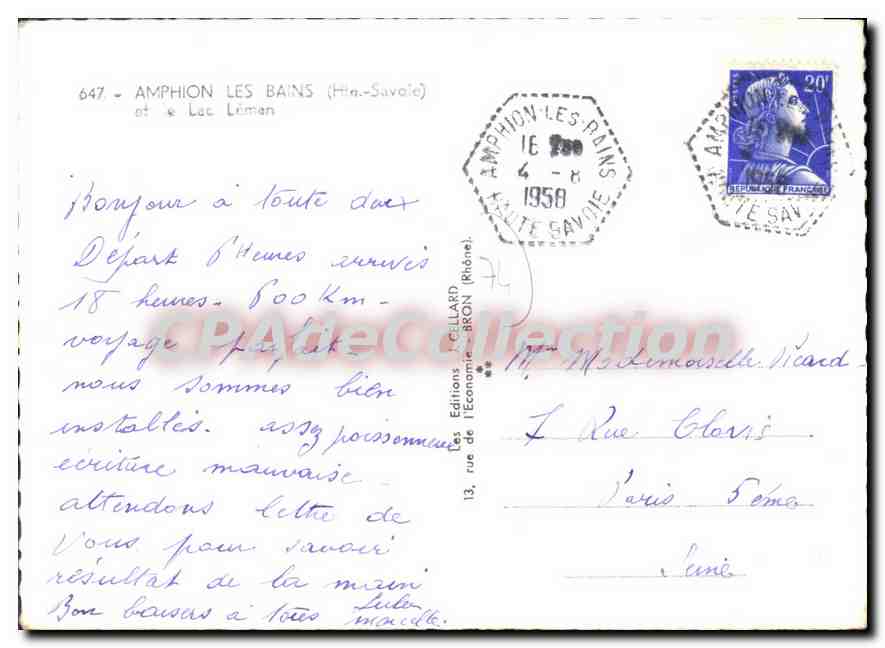 647. - AMPHION LES BAINS (Hte.-Savoie)
et le Lac Léman
Bonjour à toute deux
Départ 6 Heures arrivés
18 heures - 600 Km -
voyage parfait -
nous sommes bien
installés. assez poissonneux
écriture mauvaise -
attendons lettre de
Vous pour savoir
résultat de la main
Bon baisers à tous
marcelle.
AMPHION-LES-BAINS
16
4 - 8
1958
HAUTE SAVOIE
20F
POSTES
REPUBLIQUE FRANÇAISE
AMPHION
TE SAV
74
Les Editions J. CELLARD
13, rue de l'Economie - BRON (Rhône).
**
Mme Mademoiselle Picard -
7 Rue Clovis
Paris 5ème
Seine
CPAdeCollection.com